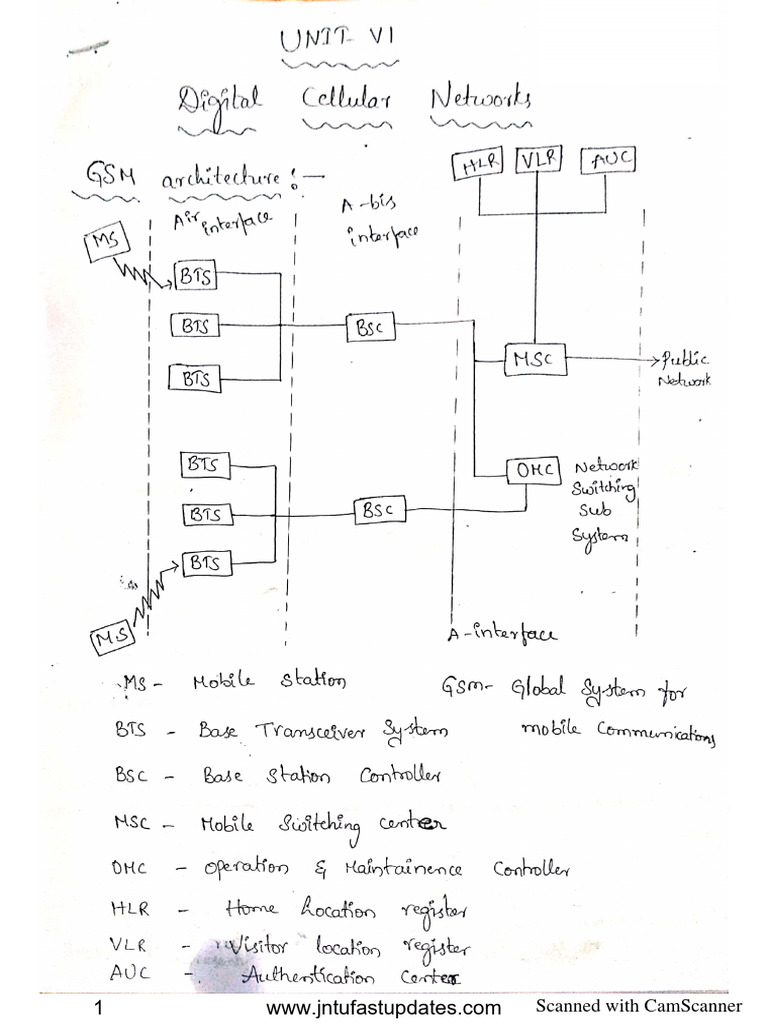 UNIT-VI
Digital Cellular Networks
GSM architecture :-
HLR VLR AUC
Air interface
A-bis interface
MS
BTS
BTS
BSC
MSC
Public Network
BTS
BTS
OMC
Network Switching Sub System
BTS
BSC
BTS
MS
A-interface
MS - Mobile Station
GSM- Global System for mobile Communications
BTS - Base Transceiver System
BSC - Base Station Controller
MSC - Mobile Switching center
OMC - Operation & Maintainence Controller
HLR - Home Location register
VLR - Visitor location register
AUC - Authentication Center
1 www.jntufastupdates.com Scanned with CamScanner